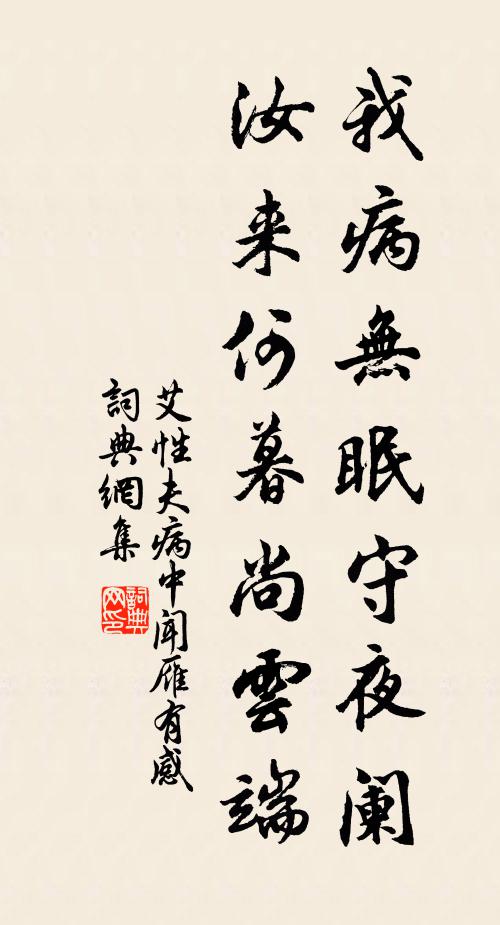 我病無眠守夜阑
汝来何暮尚雲端
艾性夫病中闻雁有感
詞典網集
詞典网印